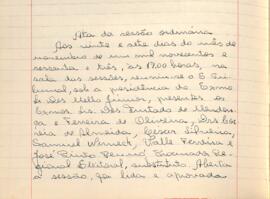 Ata da sessão ordinária
Aos vinte e sete dias do mês de
novembro de um mil novecentos e
sessenta e três, às 17,00 horas, na
sala das sessões, reuniu-se o E. Tri-
bunal, sob a presidência do Exmo
Sr. Des. Mello Júnior, presentes os
Exmos. Srs. Des. Furtado de Mendon-
ça e Ferreira de Oliveira, Drs. Cor-
reia de Almeida, Cesar Silveira,
Samuel Werneck, Valle Ferreira e
José Pinto Renó, Procurador Re-
gional Eleitoral, substituto. Aberta
a sessão, foi lida e aprovada